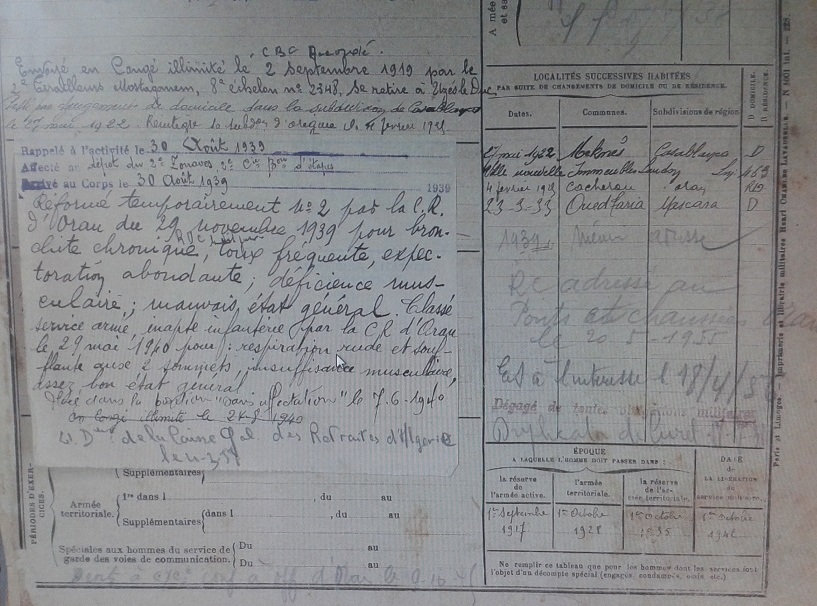 CBC Accordé.
Envoyé en Congé illimité le 2 Septembre 1919 par le
2e Tirailleurs Mostaganem, 8e échelon no 2348, Se retire à Uzès le Duc
changement de domicile dans la subdivision de Casablanca
le 27 mai 1922. Réintègre la subdon d'origine le 4 février 19
Rappelé à l'activité le 30 Août 1939
Affecté au dépôt du 2e Zouaves, 9e Cie Bon d'étapes
Arrivé au Corps le 30 Août 1939
1939
Réformé temporairement no 2 par la C.R.
d'Oran du 29 novembre 1939 pour bron-
chite chronique, toux fréquente, expec-
toration abondante; déficience mus-
culaire; mauvais état général. Classé
service armé, inapte infanterie par la CR d'Oran
le 29 mai 1940 pour: respiration rude et souf-
flante aux 2 sommets, insuffisance musculaire,
assez bon état général
Placé dans la position "sans affectation" le 7.6.1940
en congé illimité le 24-8 1940
de la Caisse Gal des Retraites d'Algérie
PÉRIODES D'EXER-
CICES.
Supplémentaires
Armée
territoriale.
1re dans l , du au
Supplémentaires dans l , du au
Spéciales aux hommes du service de
garde des voies de communication.
Du au
Du au
LOCALITÉS SUCCESSIVES HABITÉES
PAR SUITE DE CHANGEMENTS DE DOMICILE OU DE RÉSIDENCE.
Dates. Communes. Subdivisions de région. D DOMICILE. R RÉSIDENCE.
27 mai 1922 Meknès Casablanca D
Ville nouvelle Immeubles
4 février 19 Cacherou Oran
23-3-33 Oued Taria Mascara D
1939 même adresse
adressé au
Ponts et chaussées Oran
le 20-5-1955
Dégagé de toutes obligations militaires
Duplicata de livret
ÉPOQUE
A LAQUELLE L'HOMME DOIT PASSER DANS:
la réserve
de
l'armée active.
l'armée
territoriale.
la réserve
de l'ar-
mée territoriale.
DATE
de
LA LIBÉRATION
du
service militaire.
1er Septembre 1917
1er Octobre 1928
1er Octobre 1935
1er Octobre
Ne remplir ce tableau que pour les hommes dont les services font
l'objet d'un décompte spécial (engagés, condamnés, omis etc.)
Paris et Limoges. — Imprimerie et librairie militaires Henri CHARLES-LAVAUZELLE.